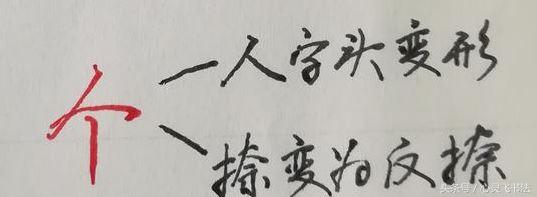 个
人字头变形
捺变为反捺
头条号 / 心灵飞书法